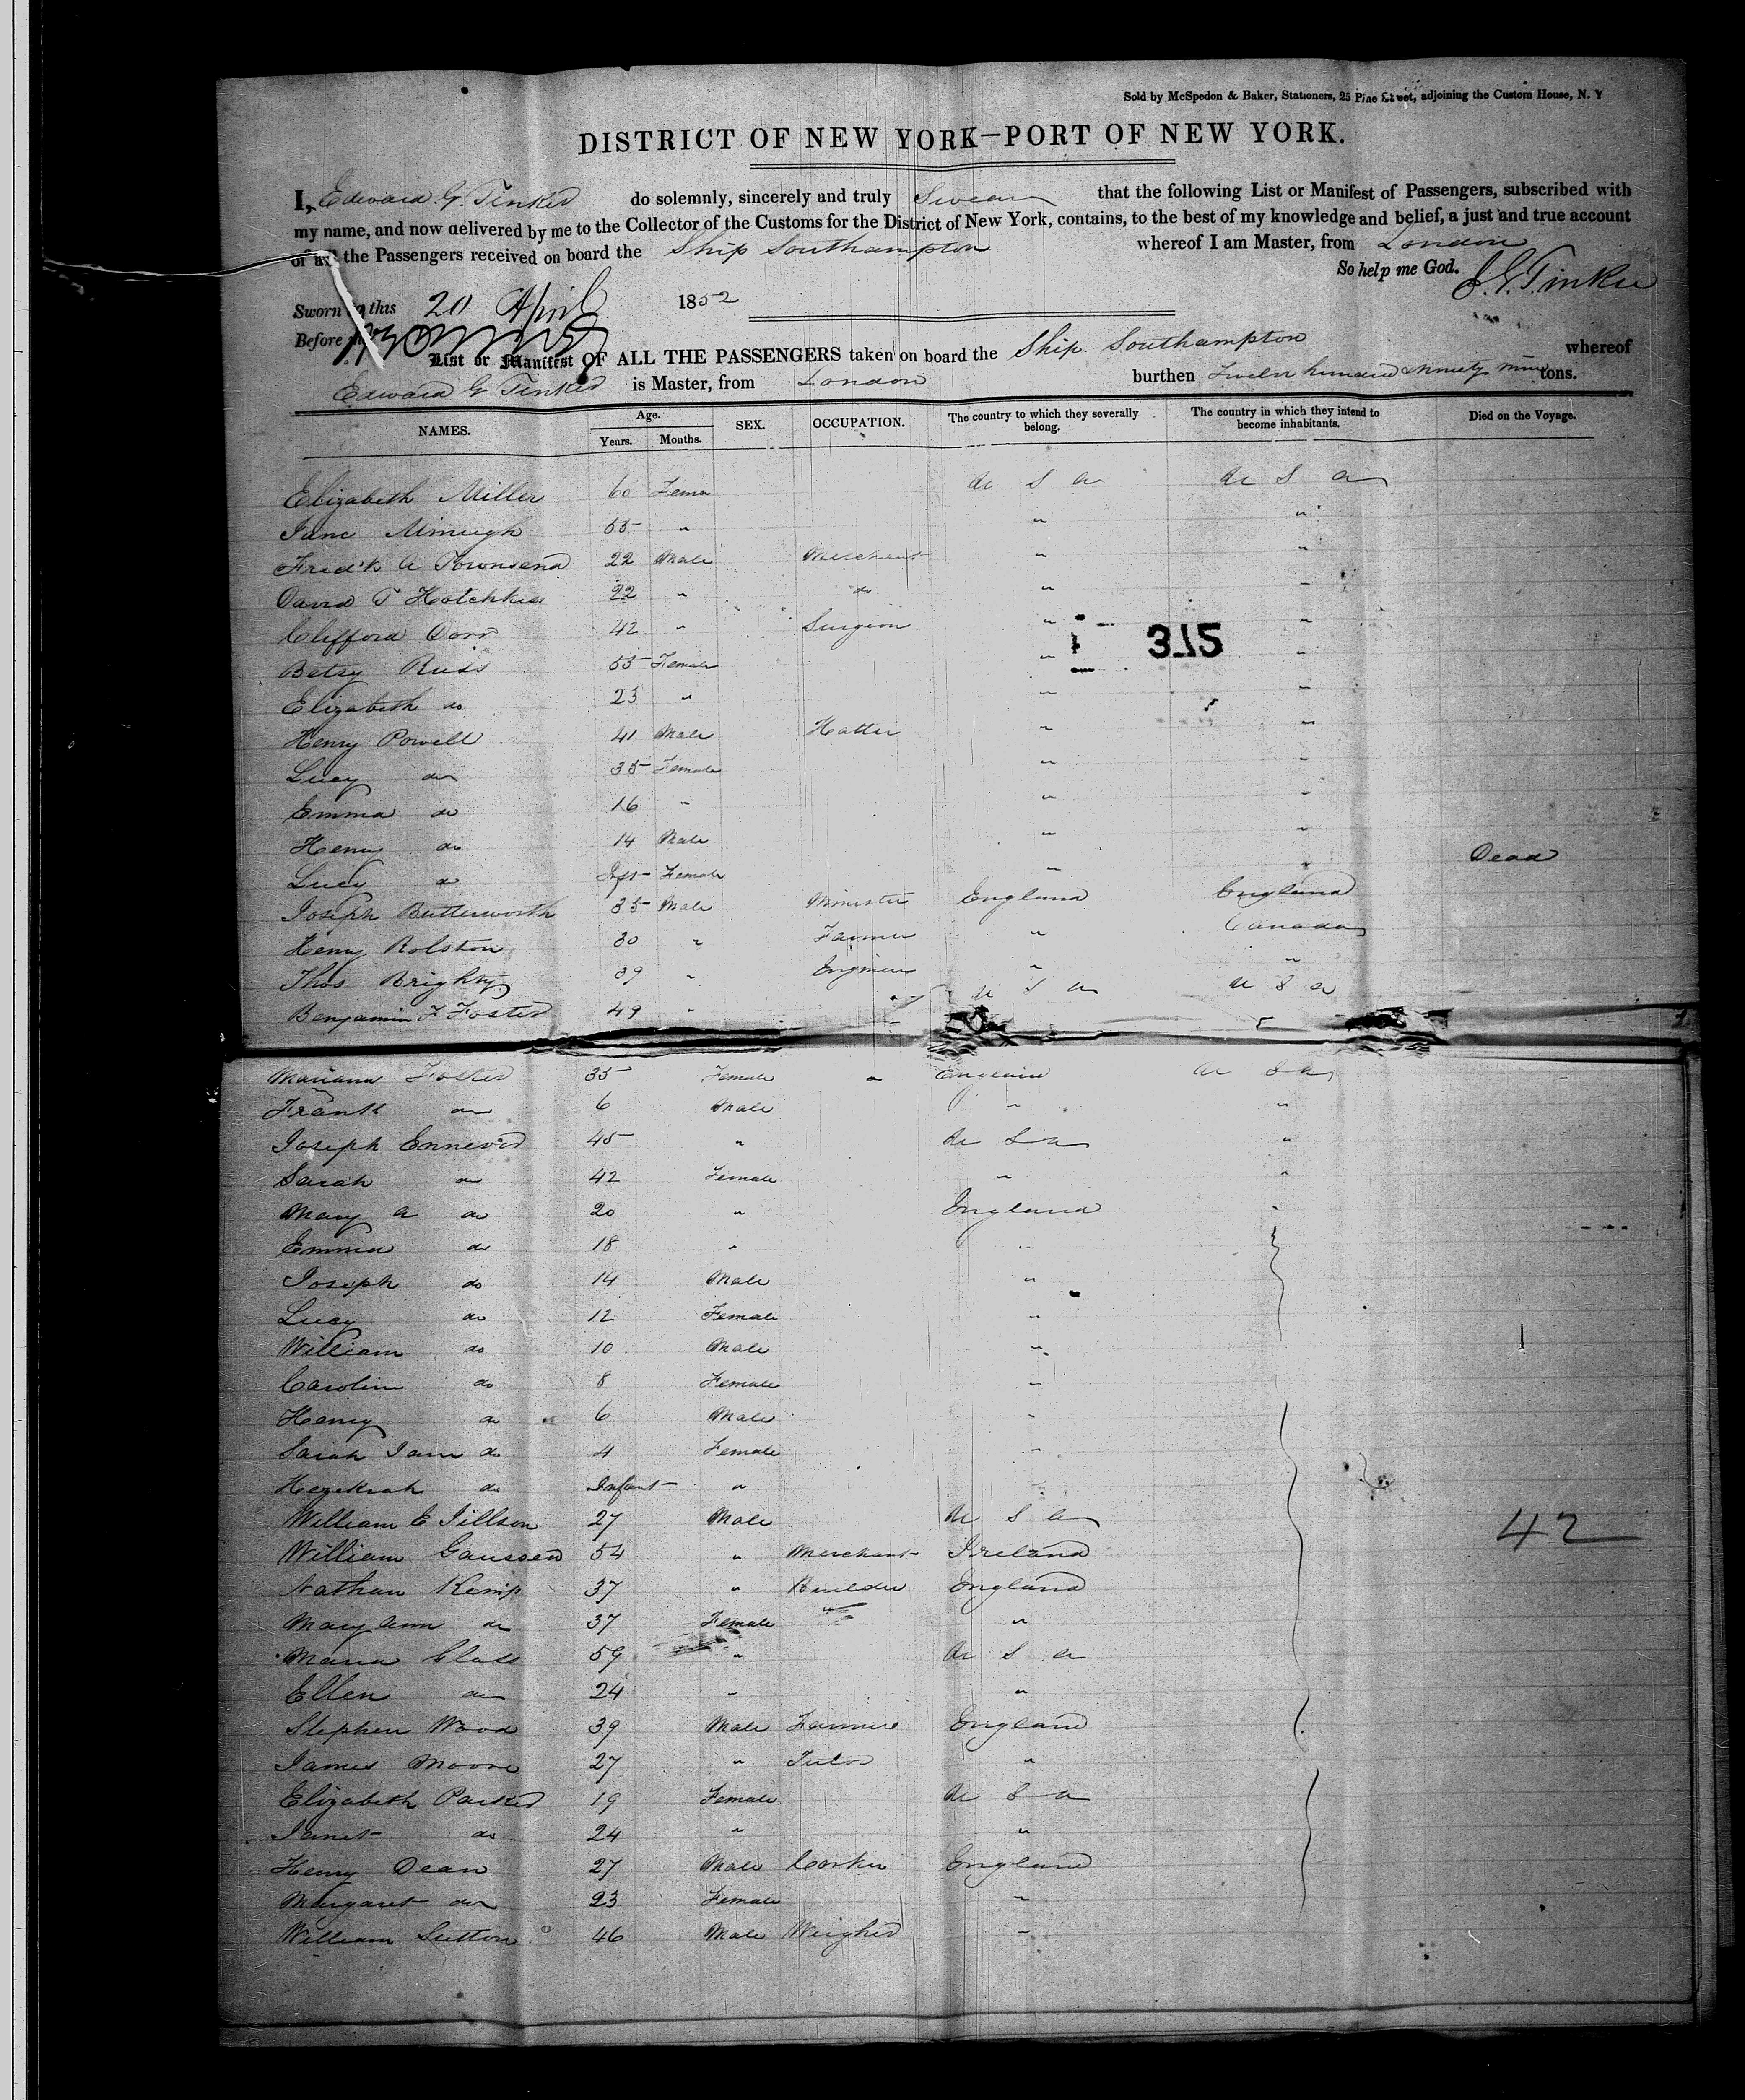 Sold by McSpedon & Baker, Stationers, 25 Pine Street, adjoining the Custom House, N. Y
DISTRICT OF NEW YORK—PORT OF NEW YORK.
I, Edward G. Tinker do solemnly, sincerely and truly Swear that the following List or Manifest of Passengers, subscribed with
my name, and now delivered by me to the Collector of the Customs for the District of New York, contains, to the best of my knowledge and belief, a just and true account
of all the Passengers received on board the Ship Southampton whereof I am Master, from London
So help me God. E. G. Tinker
Sworn to this 20 April 1852
Before me
List or Manifest OF ALL THE PASSENGERS taken on board the Ship Southampton whereof
Edward G Tinker is Master, from London burthen Twelve hundred & Ninety nine tons.
NAMES. Age. Years. Months. SEX. OCCUPATION. The country to which they severally belong. The country in which they intend to become inhabitants. Died on the Voyage.
Elizabeth Miller 60 Fema U S A U S A
Jane 55 " " "
Fred'k A Townsend 22 Male Merchant " "
David T Hotchkiss 22 " do " "
Clifford Dorr 42 " Surgeon " "
315
Betsy Russ 55 Female " "
Elizabeth do 23 " " "
Henry Powell 41 Male Hatter " "
Lucy do 35 Female " "
Emma do 16 " " "
Henry do 14 Male " "
Lucy do Inft Female " " Dead
Joseph Butterworth 35 Male Minister England England
Henry Rolston 30 " Farmer " Canada
Thos Brighty 39 " Engineer " "
Benjamin F Foster 49 " U S A U S A
Mariana Foster 35 Female " England U S A
Frank do 6 Male " "
Joseph Ennever 45 " U S A "
Sarah do 42 Female " "
Mary A do 20 " England "
Emma do 18 " "
Joseph do 14 Male "
Lucy do 12 Female "
William do 10 Male "
Carolin do 8 Female "
Henry do 6 Male "
Sarah Jane do 4 Female "
Hezekiah do Infant "
William E Jillson 27 Male U S A
42
William Gaussen 54 " Merchant Ireland
Nathan Kemp 37 " Builder England
Mary Ann do 37 Female "
Maria Class 59 " U S A
Ellen do 24 " "
Stephen Wood 39 Male Farmer England
James Moore 27 " Tutor "
Elizabeth Parker 19 Female U S A
Janet do 24 " "
Henry Dean 27 Male Corker England
Margaret do 23 Female "
William Sutton 46 Male Weigher "